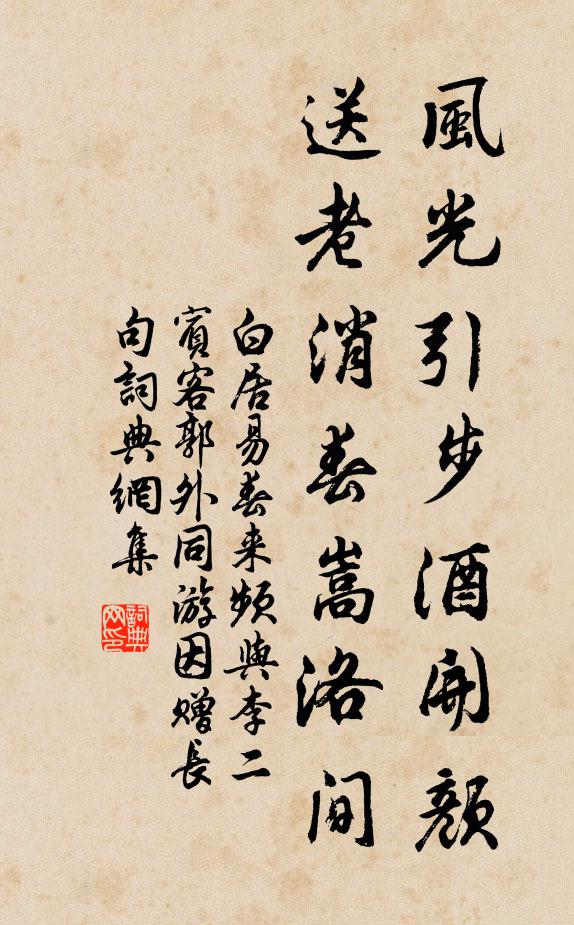 風光引步酒開顏
送老消春嵩洛間
白居易春来頻與李二
賓客郭外同游因贈長
句詞典網集
詞典网印